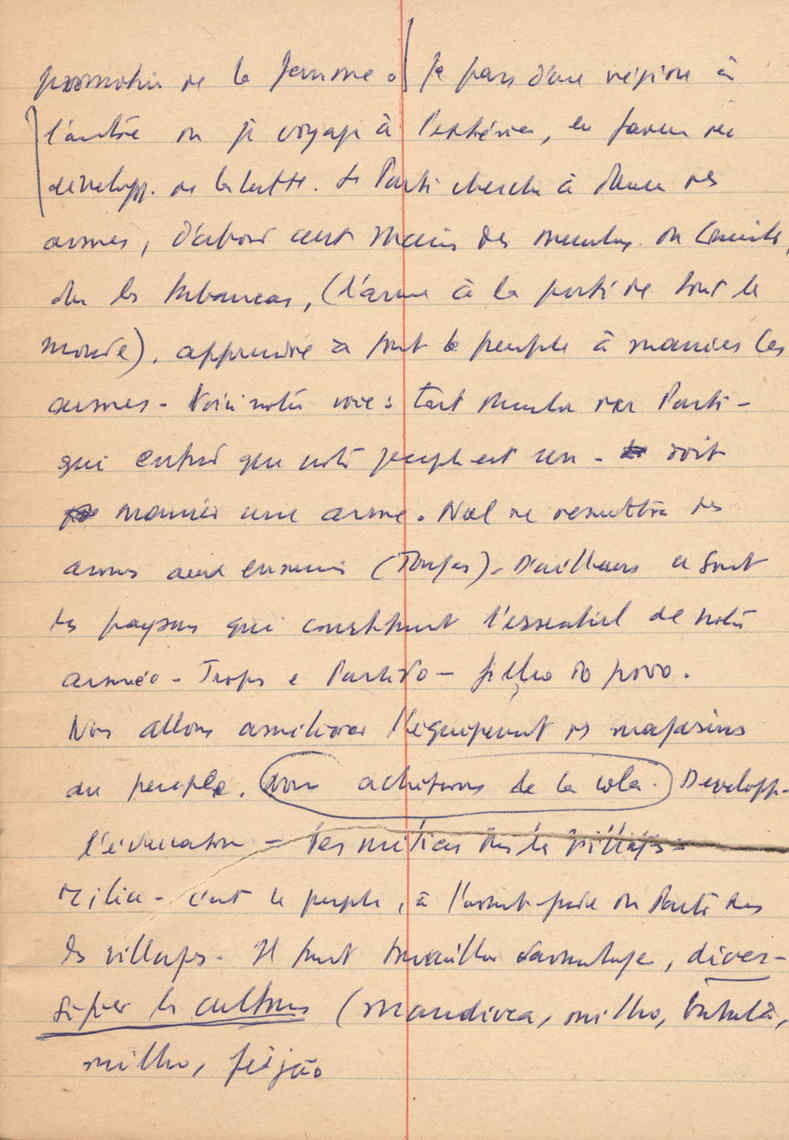 promotion de la femme. Je pars d'une région à
l'autre ou je voyage à l'extérieur, en faveur du
développ. de la lutte. Le Parti cherche à donner des
armes, d'abord aux mains des membres du Comité,
des les tabancas, (l'arme à la portée de tout le
monde). apprendre à tout le peuple à manier les
armes - Voici notre voie: tout membre du Parti -
qui entend que notre peuple est un - doit
manier une arme. Nul ne remettra des
armes aux ennemis (Tugas). D'ailleurs ce sont
les paysans qui constituent l'essentiel de notre
armée - Tropa e Partido - filho do povo.
Nous allons améliorer l'équipement des magasins
du peuple. Nous achèterons de la cola. Développ.
l'éducation - Les milices des les villages -
Milice - c'est le peuple, à l'avant-garde du Parti dans
les villages. Il faut travailler davantage, diver-
sifier les cultures (mandioca, milho, batata,
milho, feijão